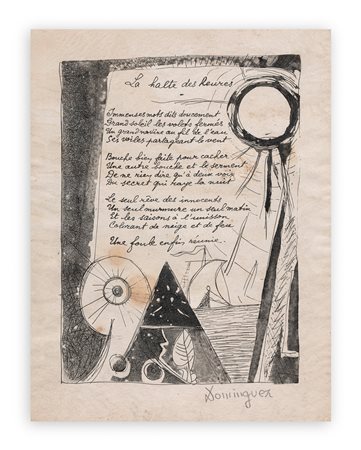 La halte des heures
Immenses mots dits doucement
Grand soleil les volets fermés
Un grand navire au fil de l'eau
Ses voiles partageant le vent
Bouche bien faite pour cacher
Une autre bouche et le serment
De ne rien dire qu'à deux voix
Du secret qui raye la nuit
Le seul rêve des innocents
Un seul murmure un seul matin
Et les saisons à l'unisson
Colorant de neige et de feu
Une foule enfin réunie.
Dominguez